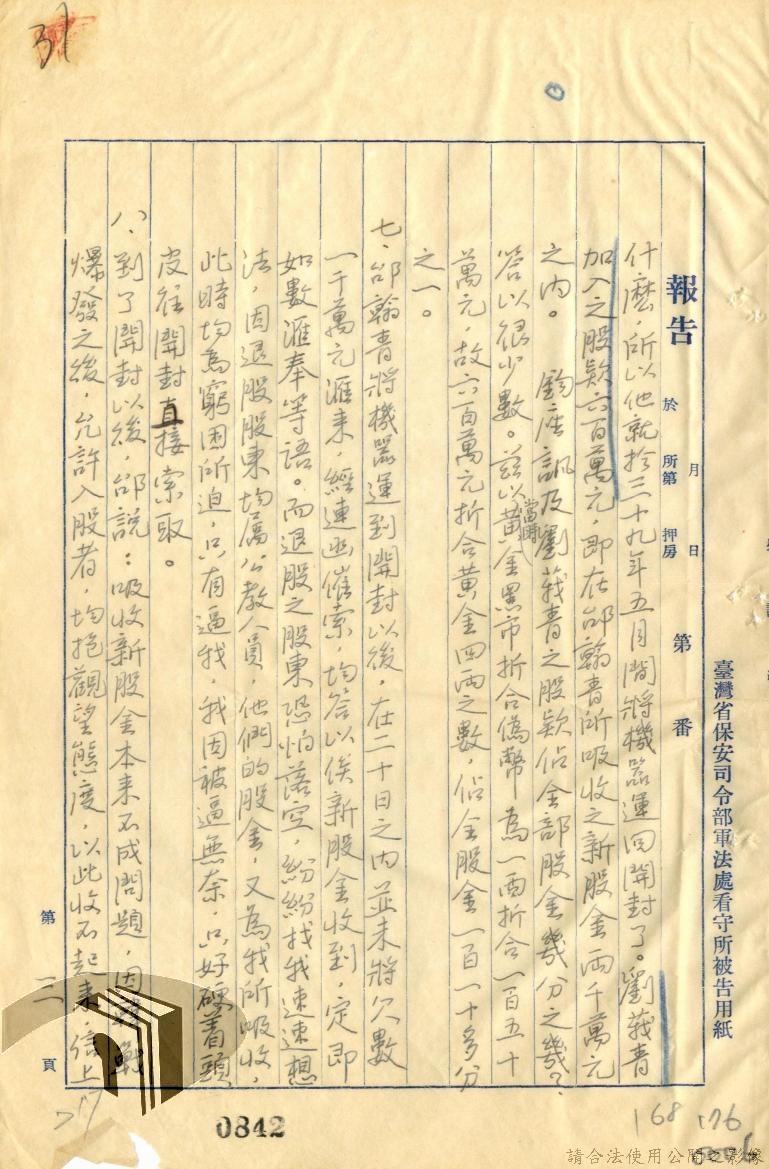 31
臺灣省保安司令部軍法處看守所被告用紙
報告 於 所第 押房 月 日 第 番
什麽,所以他就於三十九年五月間將機器運回開封了。劉莪青
加入之股欵六百萬元,即在邰翰青所吸收之新股金兩千萬元
之內。 鈞座訊及劉莪青之股欵佔全部股金幾分之幾?
答以很少數。茲以當時黃金黑市折合偽幣為一兩折合一百五十
萬元,故六百萬元折合黃金四兩之數,佔全股金一百一十多分
之一。
七、邰翰青將機器運到開封以後,在二十日之內並未將欠數
一千萬元滙来,經連函催索,均答以俟新股金收到,定即
如數滙奉等語。而退股之股東恐怕落空,紛紛找我速速想
法,因退股股東均属公教人員,他們的股金,又為我所吸收,
此時均為窮困所迫,只有逼我,我因被逼無奈,只好硬着頭
皮往開封直接索取。
八、到了開封以後,邰説:吸收新股金本来不成問題,因戰
爆發之後,允許入股者,均抱觀望態度,以此收不起来,信上
第 三 頁
0842
168 176
請合法使用公開之影像